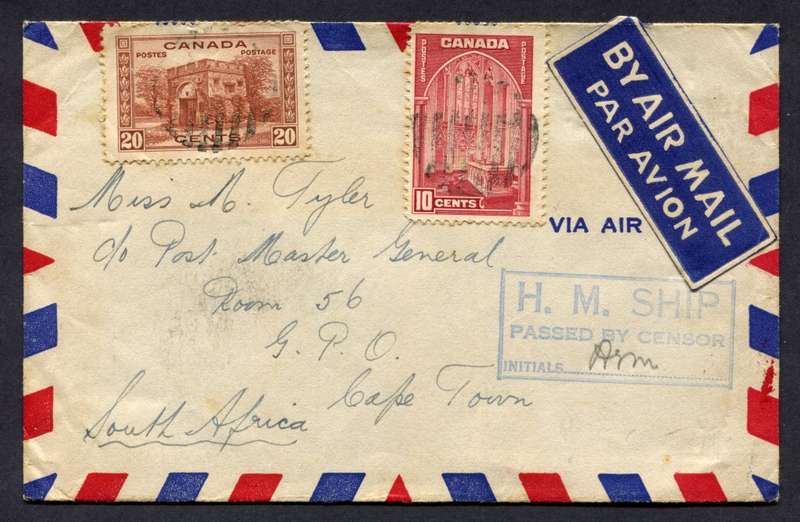 CANADA
POSTES POSTAGE
20 CENTS 20
CANADA
POSTES POSTAGE
10 CENTS
BY AIR MAIL
PAR AVION
VIA AIR
Miss M. Tyler
c/o Post Master General
Room 56
G. P. O.
Cape Town
South Africa
H. M. SHIP
PASSED BY CENSOR
INITIALS